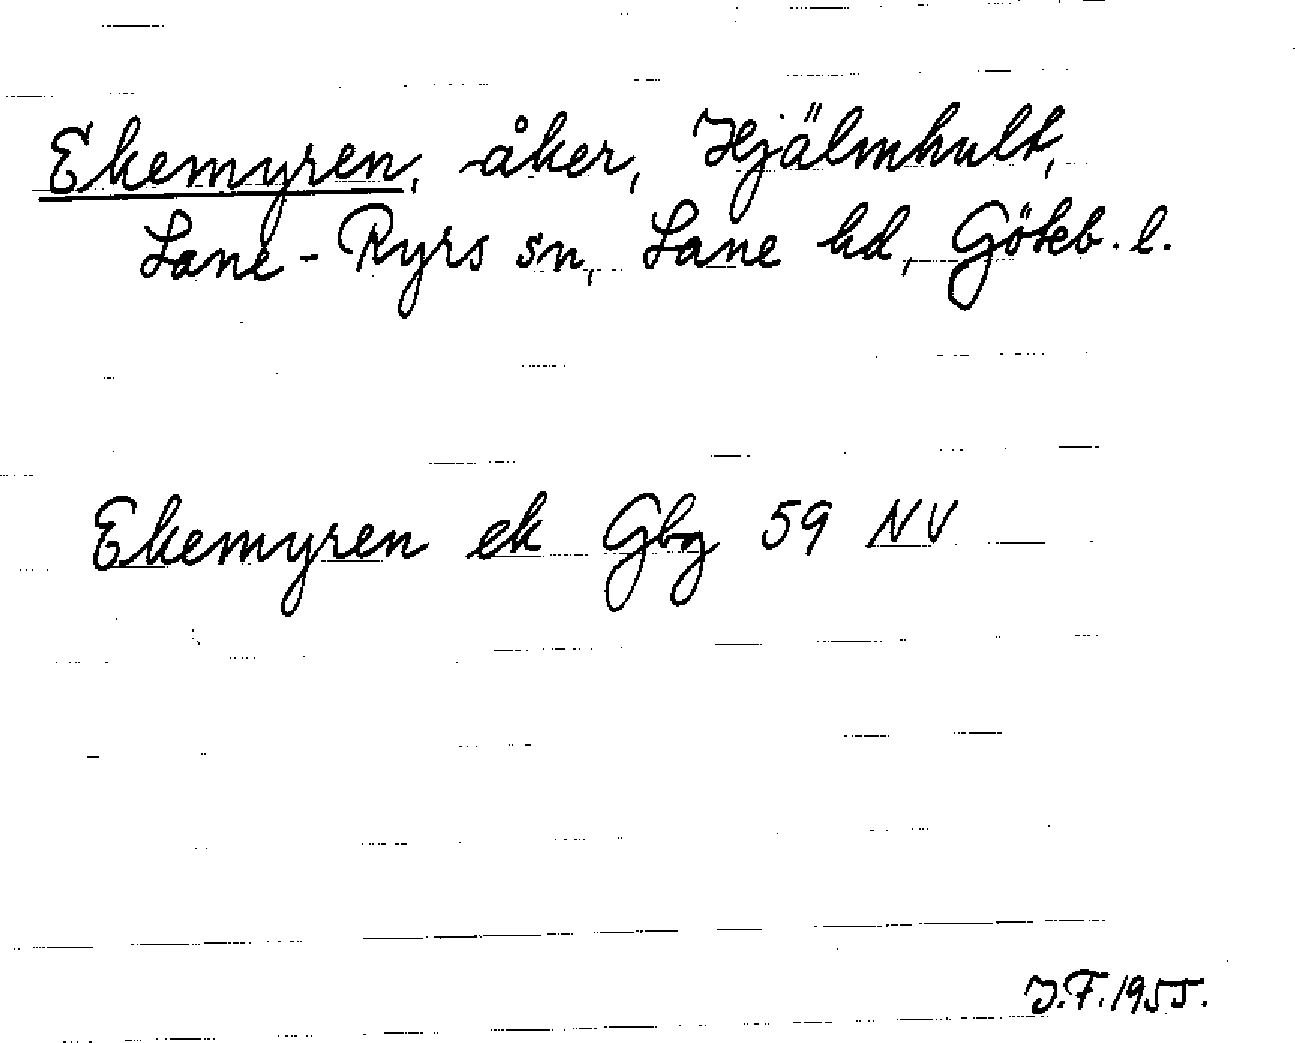 Ekemyren, åker, Hjälmhult,
Lane-Ryrs sn, Lane hd, Göteb. l.
Ekemyren ek Gbg 59 NV
J.F. 1955.